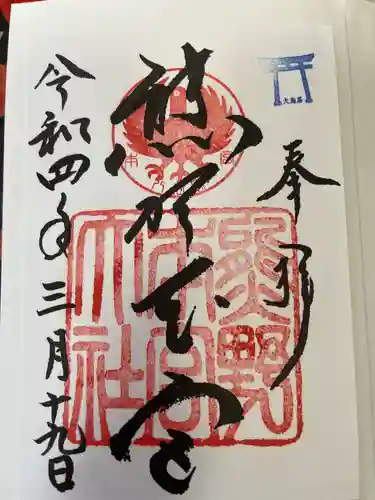 奉拝
熊野本宮
令和四年三月十九日
熊野
本宮
大社